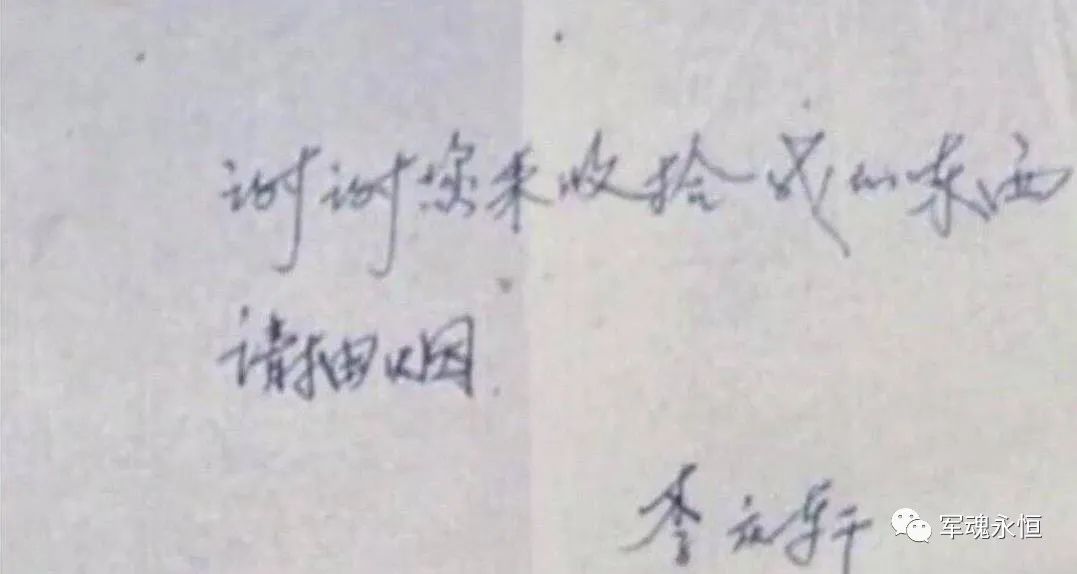 谢谢您来收拾我的东西
请抽烟.
李文轩
军魂永恒